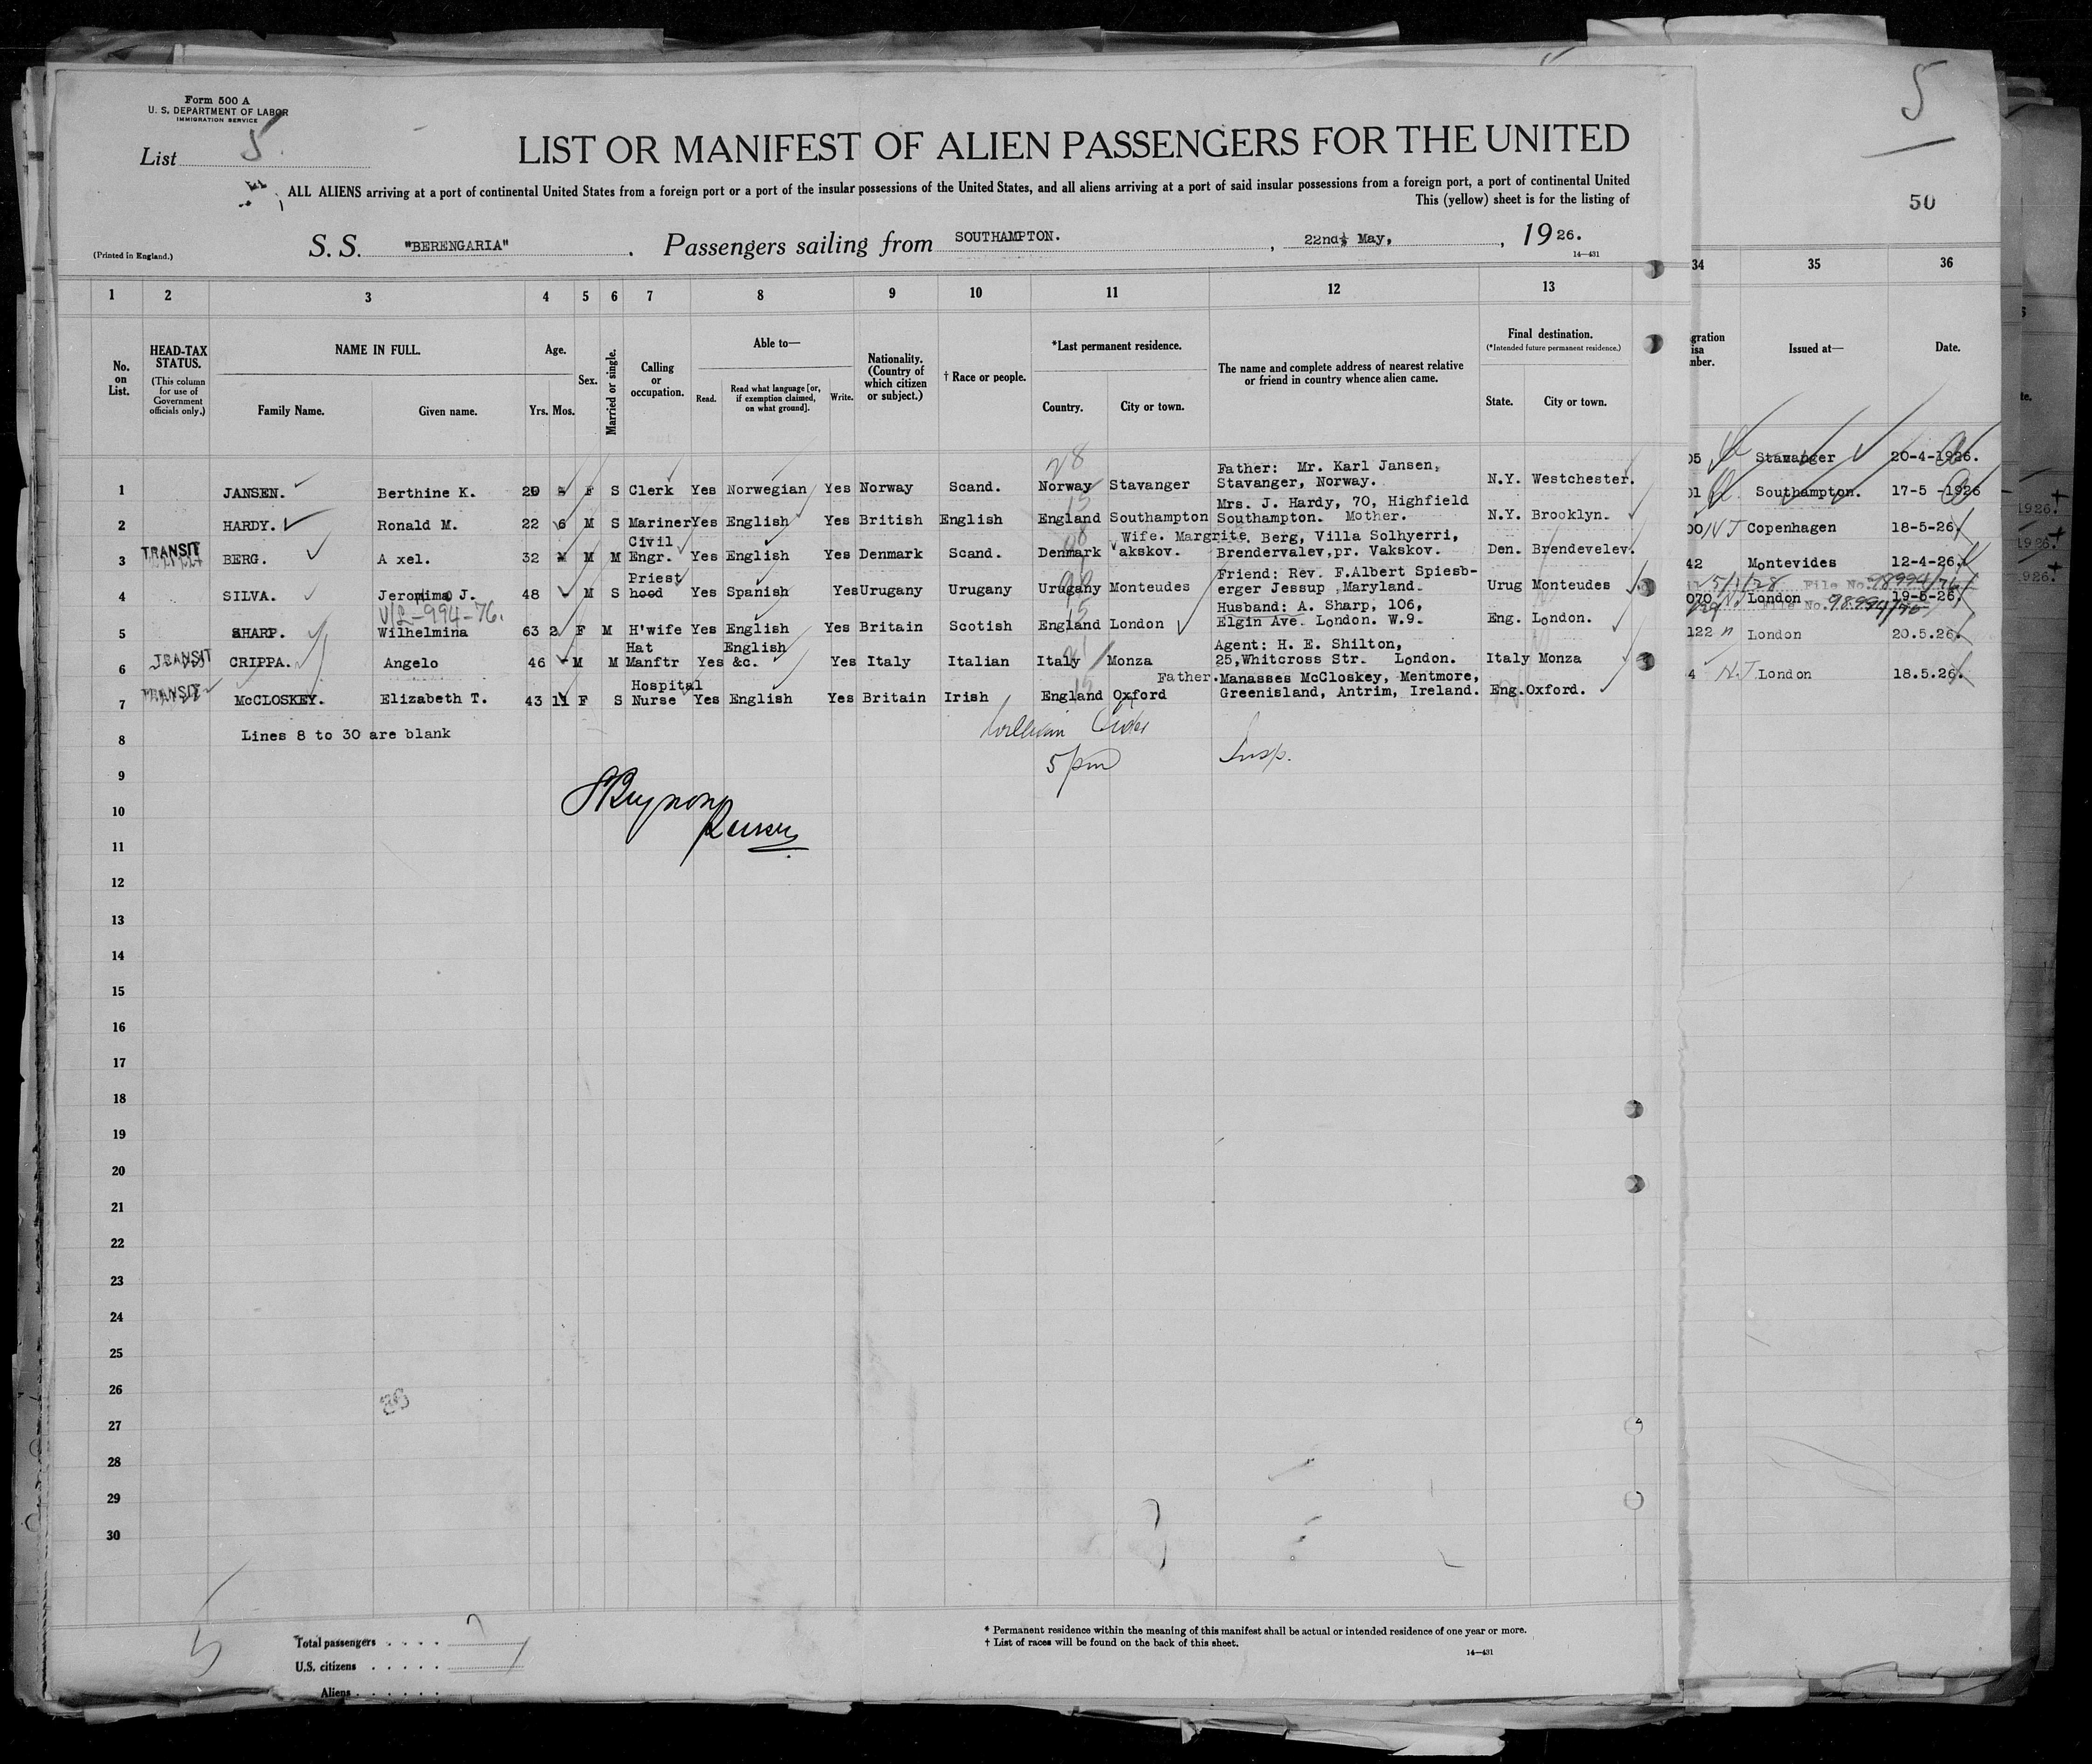 Form 500 A
U. S. DEPARTMENT OF LABOR
IMMIGRATION SERVICE
List 5.
LIST OR MANIFEST OF ALIEN PASSENGERS FOR THE UNITED
ALL ALIENS arriving at a port of continental United States from a foreign port or a port of the insular possessions of the United States, and all aliens arriving at a port of said insular possessions from a foreign port, a port of continental United
This (yellow) sheet is for the listing of
(Printed in England.)
S. S. "BERENGARIA" . Passengers sailing from SOUTHAMPTON. , 22nd May, , 1926.
14—431
5
50
1 2 3 4 5 6 7 8 9 10 11 12 13 34 35 36
No. on List.
HEAD-TAX STATUS.
(This column for use of Government officials only.)
NAME IN FULL.
Family Name. Given name.
Age.
Yrs. Mos.
Sex.
Married or single.
Calling or occupation.
Able to—
Read. Read what language [or, if exemption claimed, on what ground]. Write.
Nationality. (Country of which citizen or subject.)
† Race or people.
*Last permanent residence.
Country. City or town.
The name and complete address of nearest relative or friend in country whence alien came.
Final destination.
(*Intended future permanent residence.)
State. City or town.
Issued at— Date.
28
1 JANSEN. Berthine K. 29 F S Clerk Yes Norwegian Yes Norway Scand. Norway Stavanger Father: Mr. Karl Jansen, Stavanger, Norway. N.Y. Westchester. 05 Stavanger 20-4-1926.
2 HARDY. Ronald M. 22 6 M S Mariner Yes English Yes British English England Southampton Mrs. J. Hardy, 70, Highfield Southampton. Mother. N.Y. Brooklyn. 01 Southampton. 17-5-1926
3 TRANSIT BERG. A xel. 32 M M Civil Engr. Yes English Yes Denmark Scand. Denmark Vakskov. Wife. Margrite. Berg, Villa Solhyerri, Brendervalev,pr. Vakskov. Den. Brendevelev. 00 NJ Copenhagen 18-5-26
4 SILVA. Jeronimo J. 48 M S Priest hood Yes Spanish Yes Urugany Urugany Urugany Monteudes Friend: Rev. F.Albert Spiesb-erger Jessup ,Maryland. Urug Monteudes 42 Montevides 12-4-26.
V/L-994-76.
5/1/28 File No. 98994/76
5 SHARP. Wilhelmina 63 2 F M H'wife Yes English Yes Britain Scotish England London Husband: A. Sharp, 106, Elgin Ave. London. W.9. Eng. London. 070 NJ London 19-5-26
File No.
6 TRANSIT CRIPPA. Angelo 46 - M M Hat Manftr Yes English &c. Yes Italy Italian Italy Monza Agent: H. E. Shilton, 25,Whitcross Str. London. Italy Monza 122 London 20.5.26
7 TRANSIT McCLOSKEY. Elizabeth T. 43 11 F S Hospital Nurse Yes English Yes Britain Irish England Oxford Father.Manasses McCloskey, Mentmore, Greenisland, Antrim, Ireland. Eng. Oxford. 4 NJ London 18.5.26
8 Lines 8 to 30 are blank
William
5 pm Insp.
9
10
Purser
11
12
13
14
15
16
17
18
19
20
21
22
23
24
25
26
27
28
29
30
5
Total passengers . . . . 7
U.S. citizens . . . . .
Aliens . . . . . .
* Permanent residence within the meaning of this manifest shall be actual or intended residence of one year or more.
† List of races will be found on the back of this sheet.
14—431